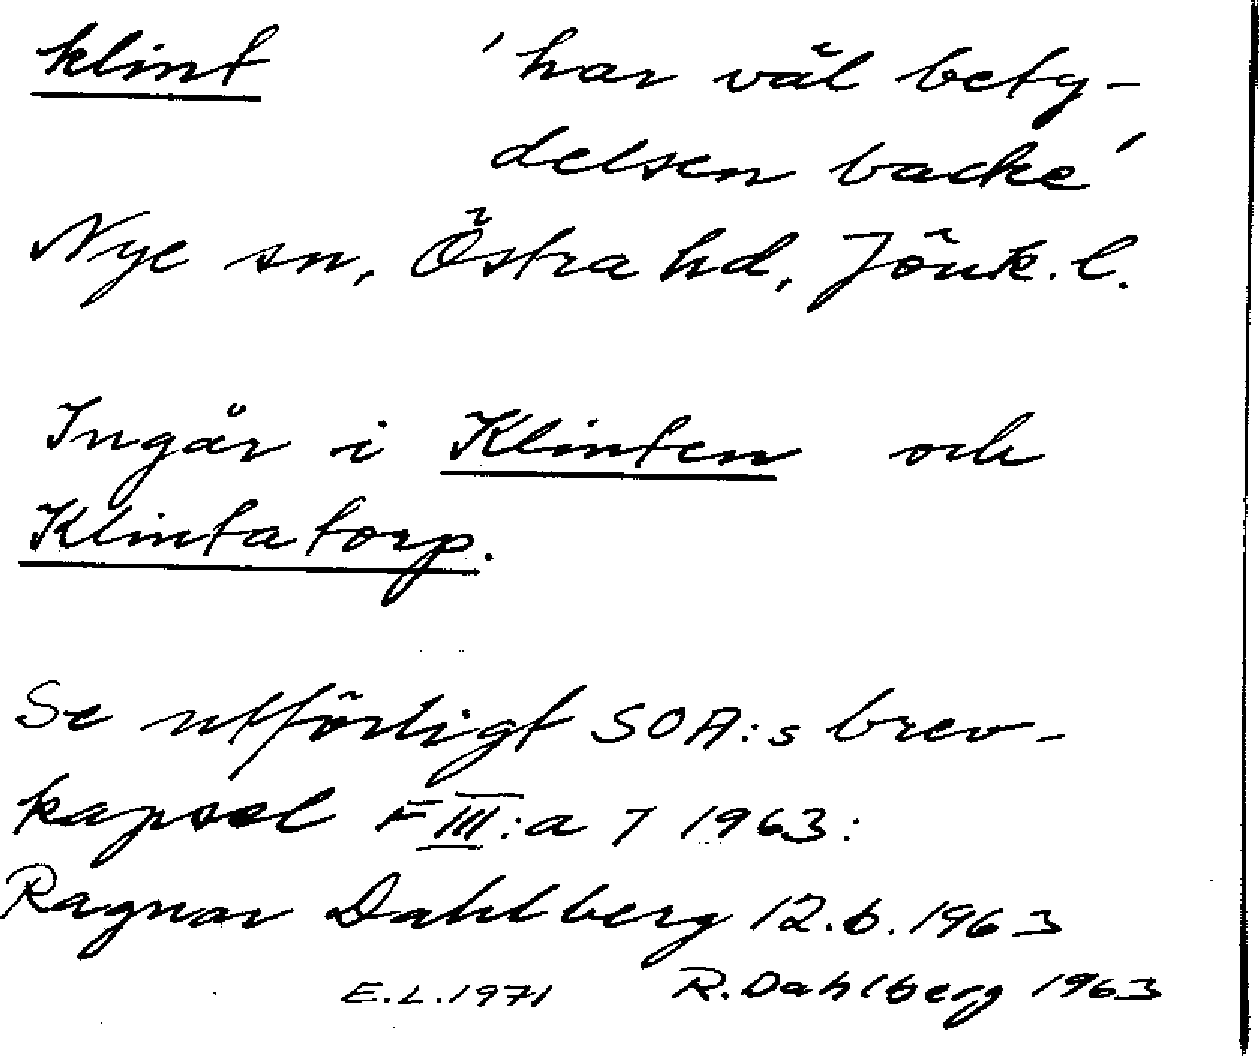 klint 'har väl bety-
delsen backe'
Nye sn, Östra hd, Jönk. l.
Ingår i Klinten och
Klintatorp.
Se utförligt SOA:s brev-
kapsel F III:a 7 1963:
Ragnar Dahlberg 12.6.1963
E.L.1971 R.Dahlberg 1963